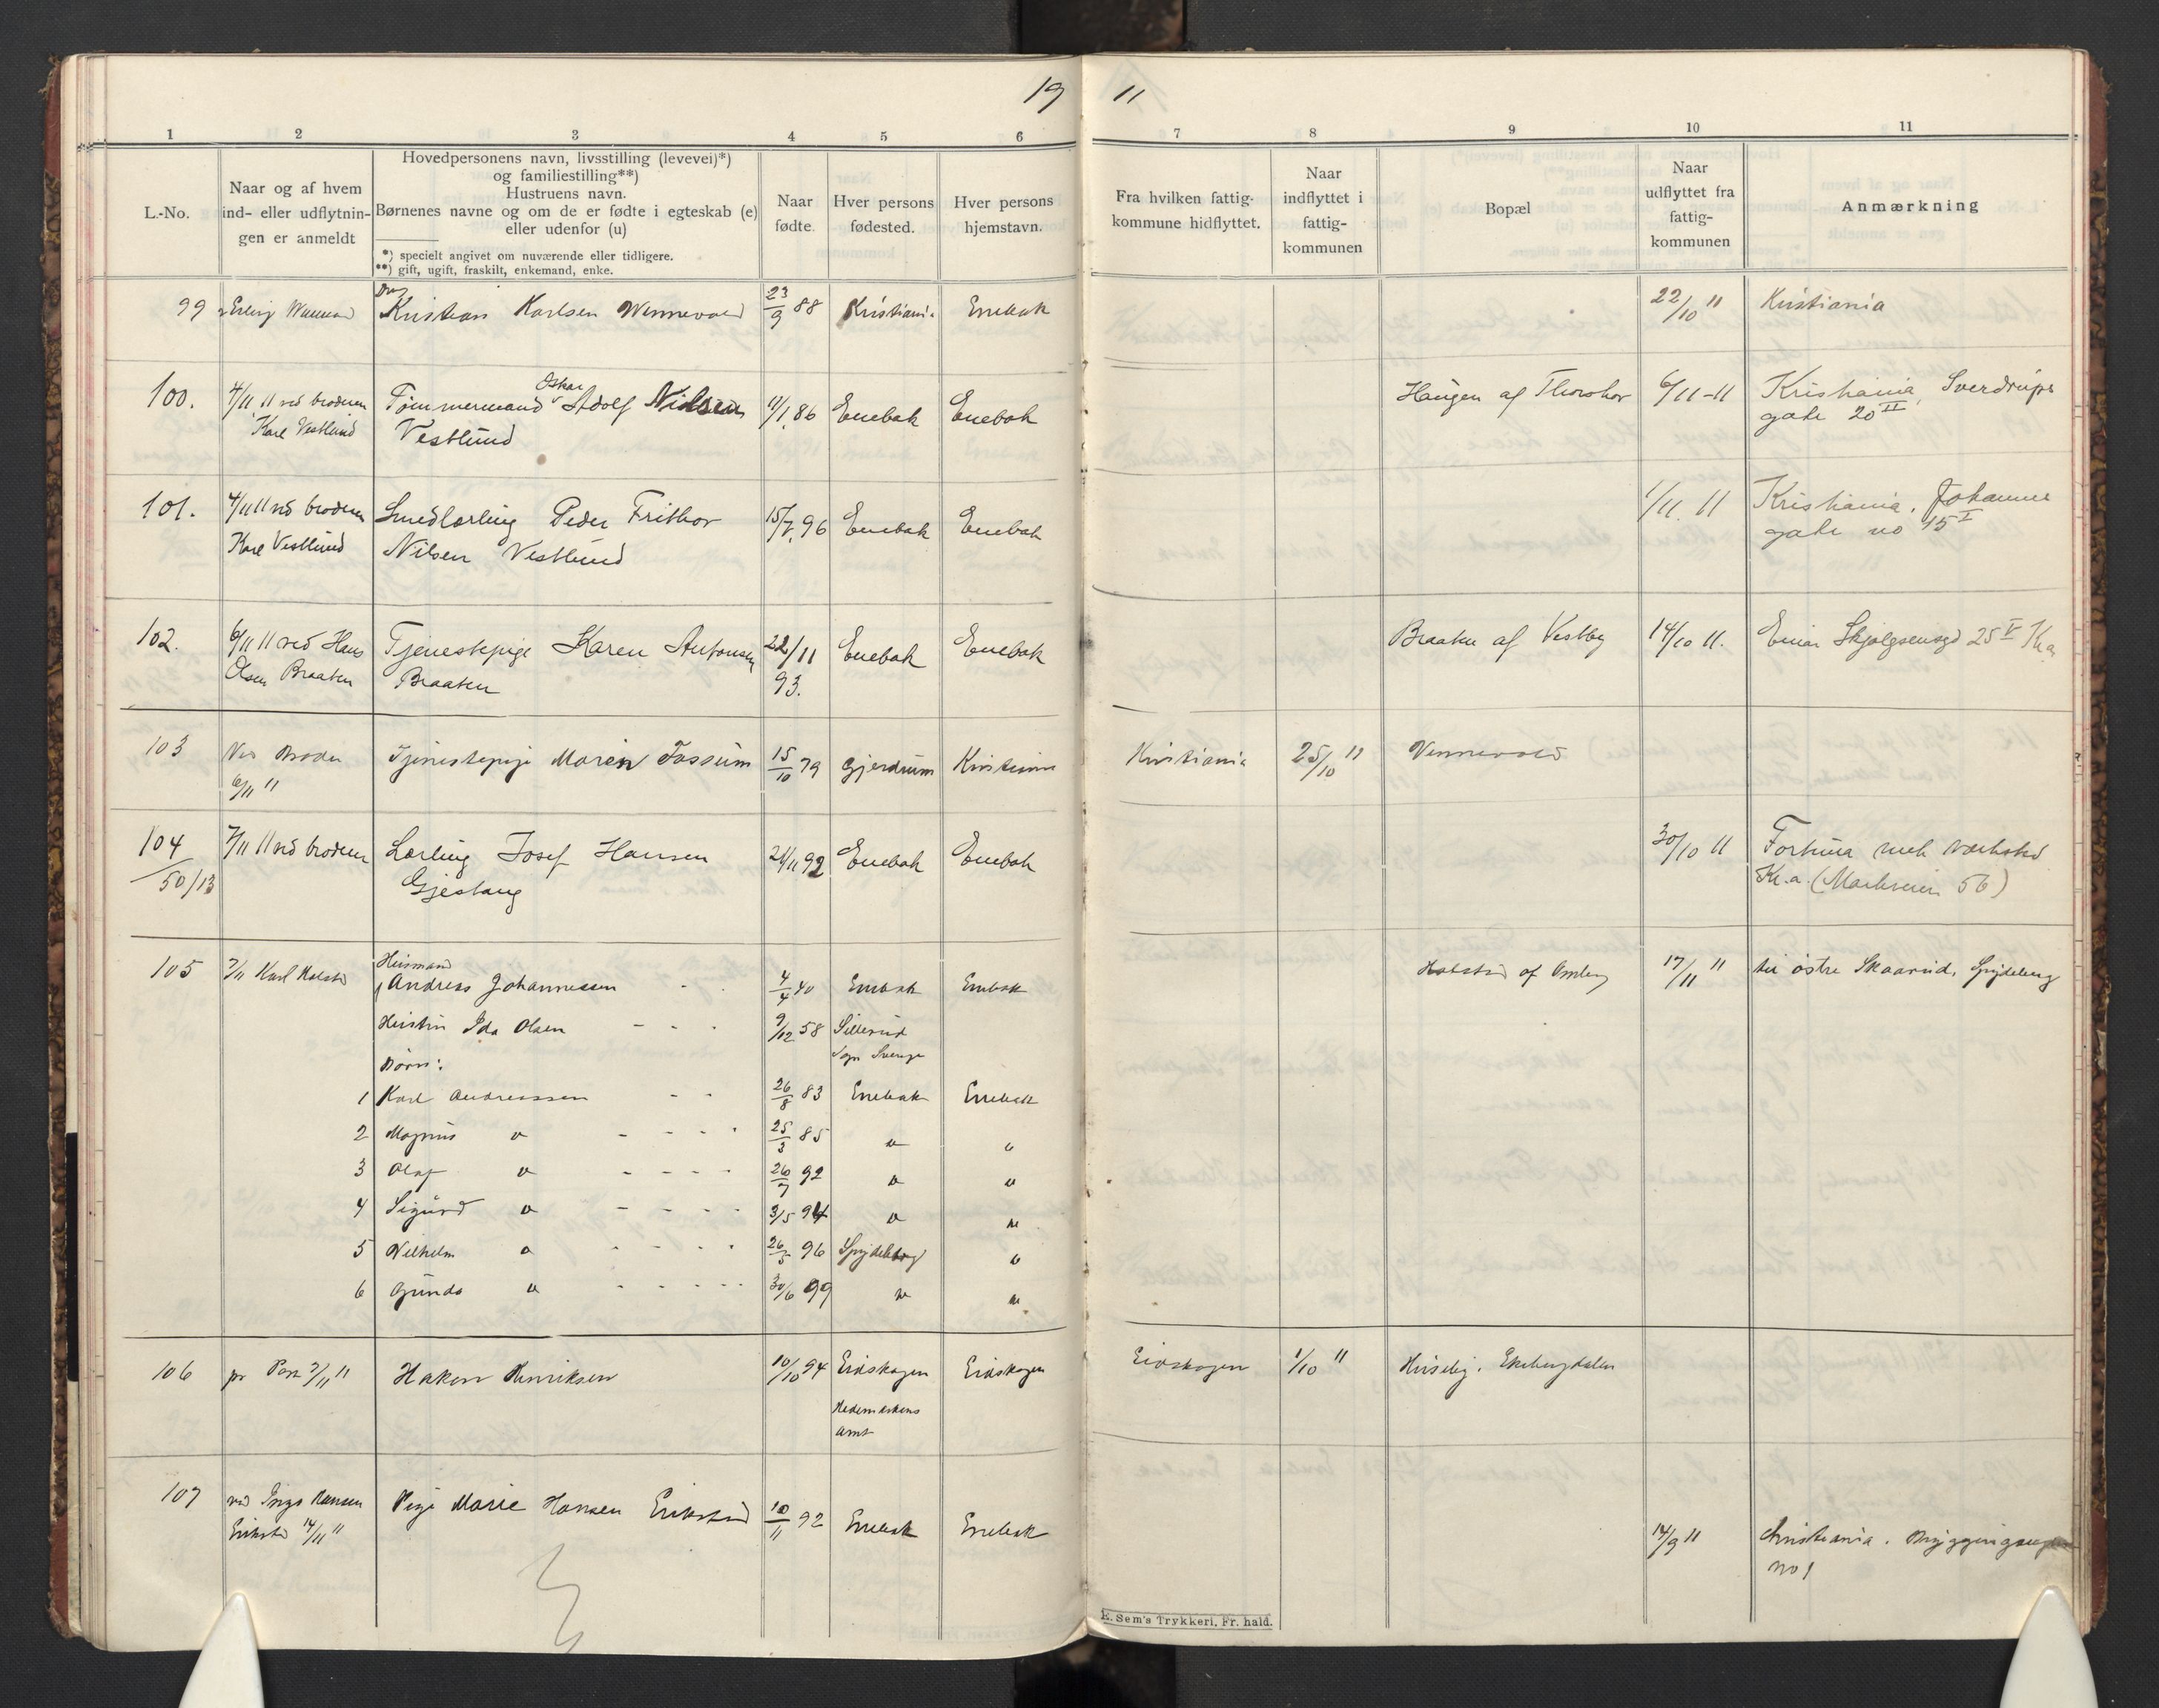 19 11
1 2 3 4 5 6 7 8 9 10 11
L.-No.
Naar og af hvem
ind- eller udflytnin-
gen er anmeldt
Hovedpersonens navn, livsstilling (levevei)*)
og familiestilling**)
Hustruens navn.
Børnenes navne og om de er fødte i egteskab (e)
eller udenfor (u)
*) specielt angivet om nuværende eller tidligere.
**) gift, ugift, fraskilt, enkemand, enke.
Naar
fødte.
Hver persons
fødested.
Hver persons
hjemstavn.
Fra hvilken fattig-
kommune hidflyttet.
Naar
indflyttet i
fattig-
kommunen
Bopæl
Naar
udflyttet fra
fattig-
kommunen
Anmærkning
99 Erling Kristian Karlsen Wennevold 23/9 88 Kristiania Enebak 22/10 11 Kristiania
100. 4/11 11 ved broderen Tømmermand Oskar Adolf Nielsen 11/1.86 Enebak Enebak Haugen af Thorshov 6/11-11 Kristiania, Sverdrups
Karl Vestlund Vestlund gade 20 II
101. 4/11 11 ved broderen Smedlærling Peder Frithov 15/7.96 Enebak Enebak 1/11. 11 Kristiania, Johannes
Karl Vestlund Nilsen Vestlund gade no 15 I
102. 6/11 11 ved Hans Tjenestepige Karen Antonsen 22/11 Enebak Enebak Braaten af Vestby 14/10 11. Einar Skjolgsensgd 25 V Kr.a
Olsen Braaten Braaten 93.
103 Ved Broder Tjenestepige Maren Fossum 15/10 79 Gjerdrum Kristiania Kristiania 25/10 11 Vennevold
6/11 11
104 7/11 11 ved broderen Lærling Josef Hansen 24/11 92 Enebak Enebak 30/10 11 Fortuna mek værksted
50/13 Gjestang Kr.a. (Markveien 56)
105 7/11 Karl Holstad Husmand
Andreas Johannessen 4/4 40 Enebak Enebak Holstad af Omberg 17/11 11 til østre Skaarud, Spydeberg
Hustru Ida Olsen 9/12 58 Sillerud
Sogn Sverige
Børn:
1 Karl Andreassen 26/8 83 Enebak Enebak
2 Magnus " 25/3 85 " "
3 Olaf " 26/7 92 " "
4 Sigurd " 3/5 94 " "
5 Vilhelm " 26/5 96 Spydeberg "
6 Gunda " 30/6 99 " "
106 pr Post 7/11 11 Hakon Henriksen 10/10 94 Eidskogen Eidskogen Eidskogen 1/10 11 Huseby, Ekebergdalen
Hedemarkens
amt
107 ved Inga Hansen Pige Marie Hansen Erikstad 10/11 92 Enebak Enebak
Erikstad 14/11 11 14/9 11 Christiania.
no 1
E. Sem's Trykkeri, Fr. hald.